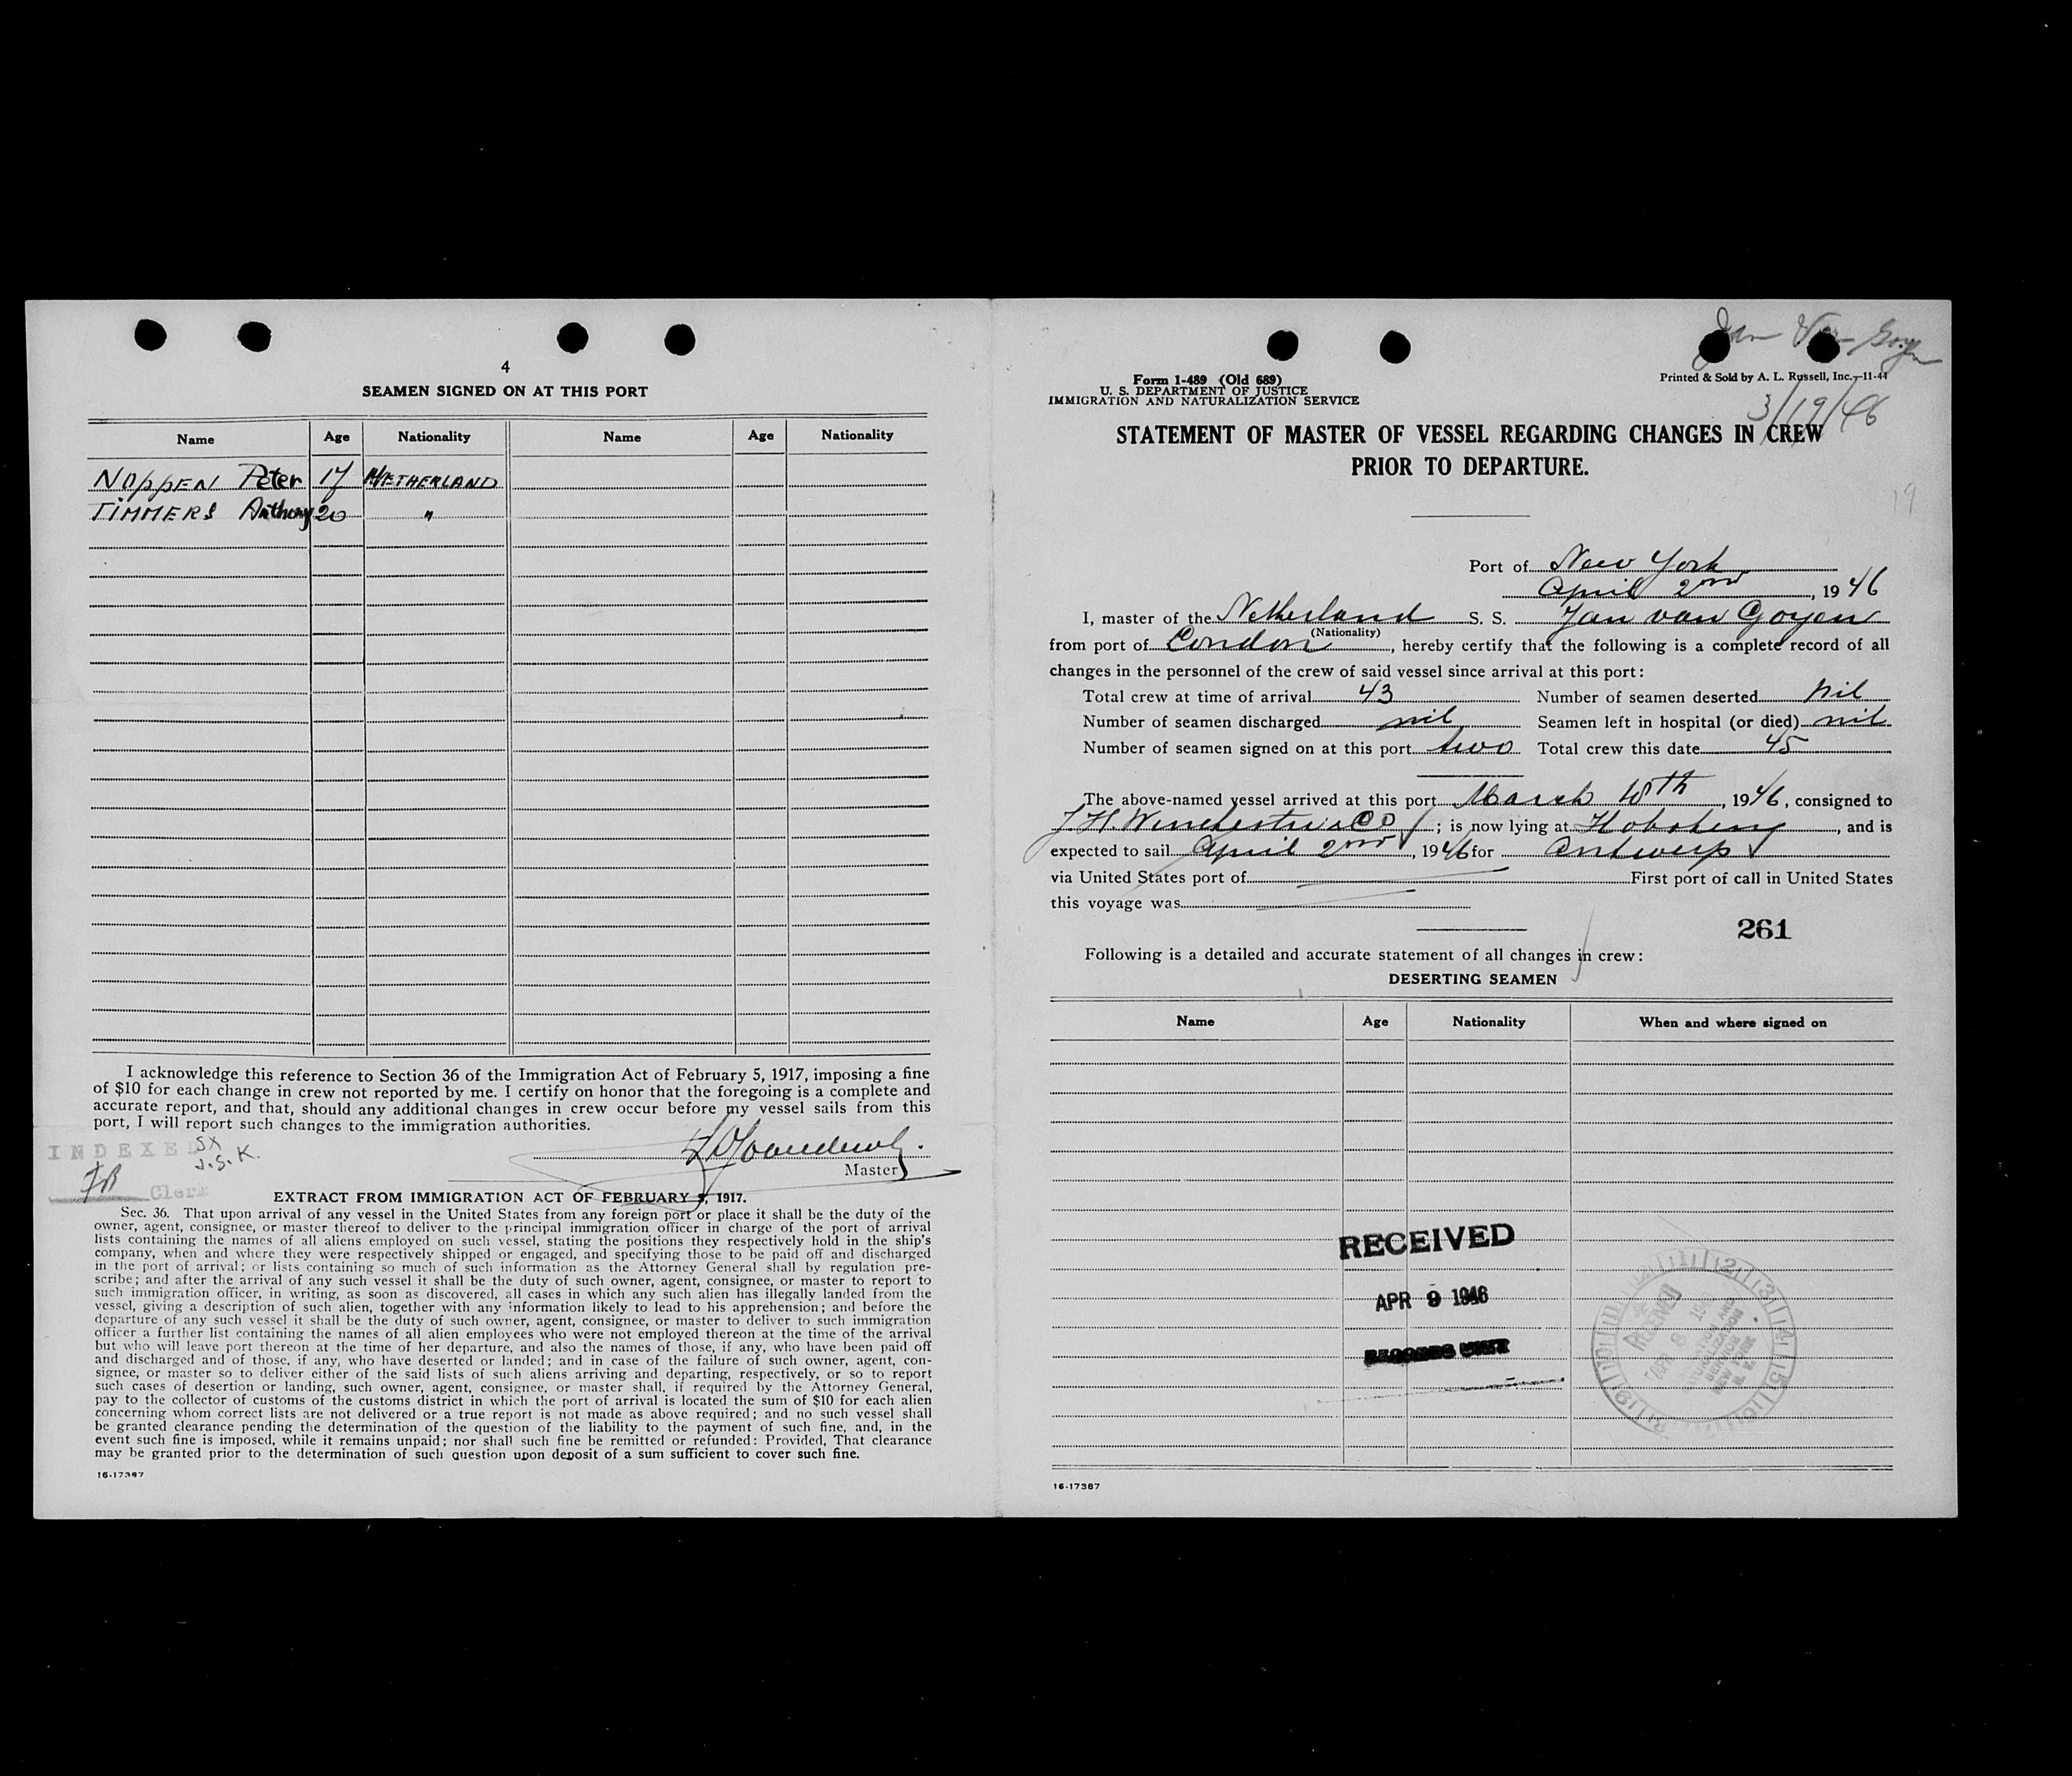 4
SEAMEN SIGNED ON AT THIS PORT
Name Age Nationality Name Age Nationality
NOPPEN Peter 17 NETHERLAND
TIMMERS Anthony 20 "
I acknowledge this reference to Section 36 of the Immigration Act of February 5, 1917, imposing a fine
of $10 for each change in crew not reported by me. I certify on honor that the foregoing is a complete and
accurate report, and that, should any additional changes in crew occur before my vessel sails from this
port, I will report such changes to the immigration authorities.
INDEXED SX
J.S.K.
Master
FB Clerk
EXTRACT FROM IMMIGRATION ACT OF FEBRUARY 5, 1917.
Sec. 36. That upon arrival of any vessel in the United States from any foreign port or place it shall be the duty of the
owner, agent, consignee, or master thereof to deliver to the principal immigration officer in charge of the port of arrival
lists containing the names of all aliens employed on such vessel, stating the positions they respectively hold in the ship's
company, when and where they were respectively shipped or engaged, and specifying those to be paid off and discharged
in the port of arrival; or lists containing so much of such information as the Attorney General shall by regulation pre-
scribe; and after the arrival of any such vessel it shall be the duty of such owner, agent, consignee, or master to report to
such immigration officer, in writing, as soon as discovered, all cases in which any such alien has illegally landed from the
vessel, giving a description of such alien, together with any information likely to lead to his apprehension; and before the
departure of any such vessel it shall be the duty of such owner, agent, consignee, or master to deliver to such immigration
officer a further list containing the names of all alien employees who were not employed thereon at the time of the arrival
but who will leave port thereon at the time of her departure, and also the names of those, if any, who have been paid off
and discharged and of those, if any, who have deserted or landed; and in case of the failure of such owner, agent, con-
signee, or master so to deliver either of the said lists of such aliens arriving and departing, respectively, or so to report
such cases of desertion or landing, such owner, agent, consignee, or master shall, if required by the Attorney General,
pay to the collector of customs of the customs district in which the port of arrival is located the sum of $10 for each alien
concerning whom correct lists are not delivered or a true report is not made as above required; and no such vessel shall
be granted clearance pending the determination of the question of the liability to the payment of such fine, and, in the
event such fine is imposed, while it remains unpaid; nor shall such fine be remitted or refunded: Provided, That clearance
may be granted prior to the determination of such question upon deposit of a sum sufficient to cover such fine.
16-17387
Jan Van Goyen
Form 1-489 (Old 689)
U. S. DEPARTMENT OF JUSTICE
IMMIGRATION AND NATURALIZATION SERVICE
Printed & Sold by A. L. Russell, Inc.—11-44
3/19/46
STATEMENT OF MASTER OF VESSEL REGARDING CHANGES IN CREW
PRIOR TO DEPARTURE.
19
Port of New York
April 2nd, 1946
I, master of the Netherland S. S. Jan van Goyen
(Nationality)
from port of London, hereby certify that the following is a complete record of all
changes in the personnel of the crew of said vessel since arrival at this port:
Total crew at time of arrival 43 Number of seamen deserted nil
Number of seamen discharged nil Seamen left in hospital (or died) nil
Number of seamen signed on at this port two Total crew this date 45
The above-named vessel arrived at this port March 18th, 1946, consigned to
J. H. Winchester & Co; is now lying at Hoboken, and is
expected to sail April 2nd, 1946 for Antwerp
via United States port of First port of call in United States
this voyage was
261
Following is a detailed and accurate statement of all changes in crew:
DESERTING SEAMEN
Name Age Nationality When and where signed on
RECEIVED
APR 9 1946
RECORDS UNIT
RECEIVED
16-17387